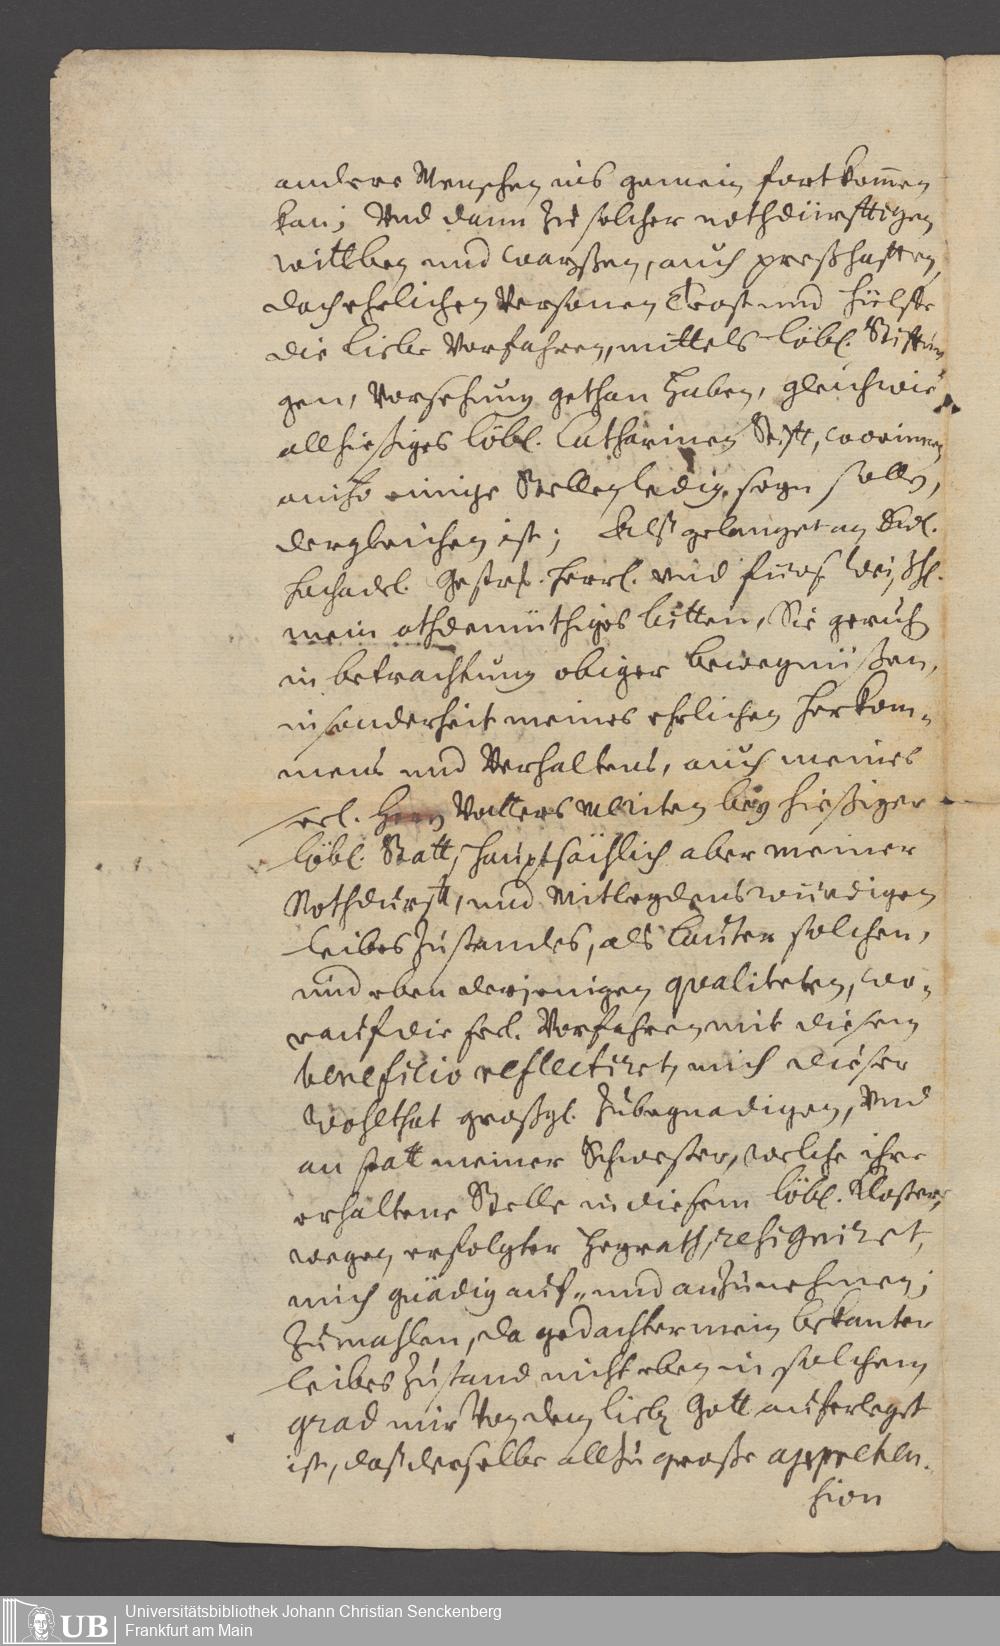 andere Menschen ins gemein fortkom̄en
kan; Und dann zu solcher nothdürfftigen
wittben und waÿßen, auch preßhafften,
doch ehrlichen Persohnen Trost und Hülffe
die liebe Vorfahren, mittels löbl. Stiftun
gen, Vorsehung gethan haben, gleichwie
allhießiges löbl. Catharinen Stifft, worinnen
anitzo einige Stellen ledig seyn sollen,
dergleichen ist; Alß gelanget an
hochadel. Gestr. Herrl. und
mein ohdemüthiges bitten, Sie geruhen
in betrachtung obiger bewegnüßen,
in sonderheit meines ehrlichen Herkom„
mens und Verhaltens, auch meines
seel. Herrn Vatters Meriten beÿ hießiger
löbl. Statt, hauptsächlich aber meiner
Nothdurfft, und Mitleydenswürdigen
leibes Zustandes, als lauter solchen,
und eben derjenigen qualiteten, wo„
rauf die seel. Vorfahren mit diesem
beneficio reflectiret, mich dieser
Wohlthat großgl. zubegnadigen, Und
an statt meiner Schwester, welche ihre
erhaltene Stelle in diesem löbl. Kloster,
wegen erfolgter Heyrath, resigniret,
mich gnädig auf„ und anzunehmen;
Zumahlen, da gedachter mein bekanter
leibes Zustand nicht eben in solchem
grad mir Von dem lieben Gott auferleget
ist, daß derselbe allzu große apprehen„
sion
Universitätsbibliothek Johann Christian Senckenberg
UB
Frankfurt am Main